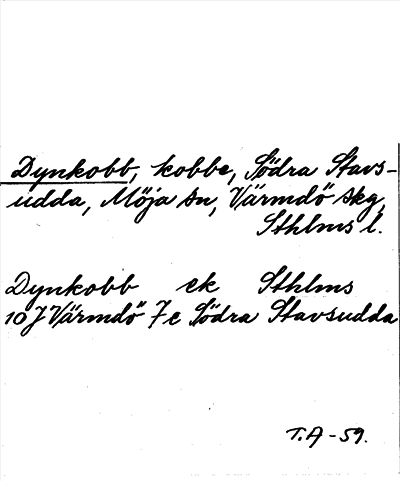 Dynkobb, kobbe, Södra Stavs-
udda, Möja sn, Värmdö skg,
Sthlms l.
Dynkobb ek Sthlms
10 J Värmdö 7 e Södra Stavsudda
T.A -59.